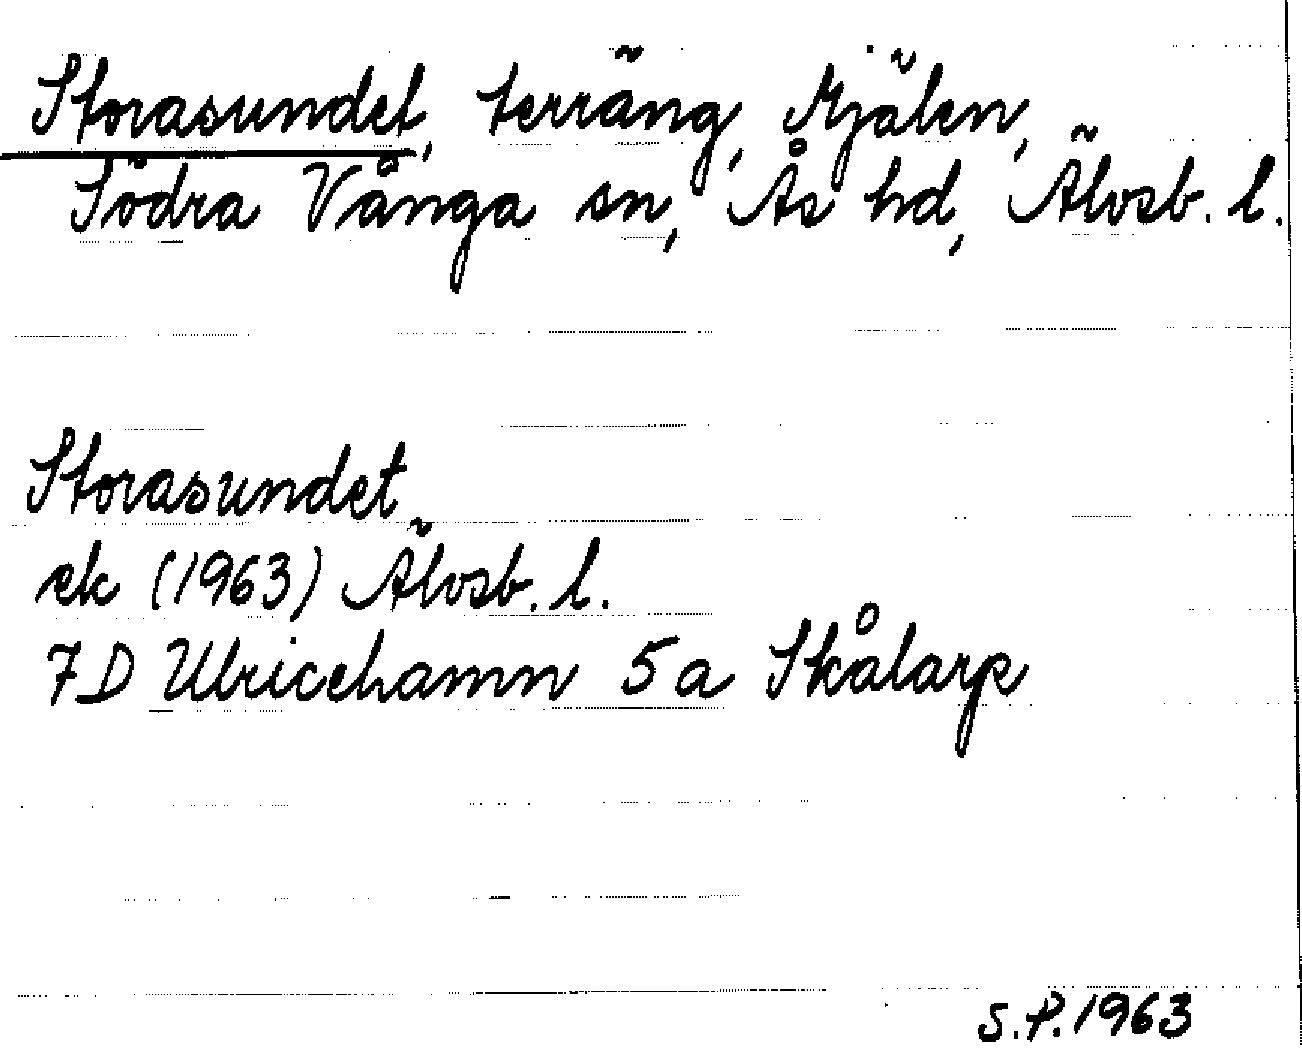 Storasundet, terräng, Mjälen,
Södra Vånga sn, Ås hd, Älvsb. l.
Storasundet
ek (1963) Älvsb. l.
7D Ulricehamn 5a Skålarp
S.P. 1963